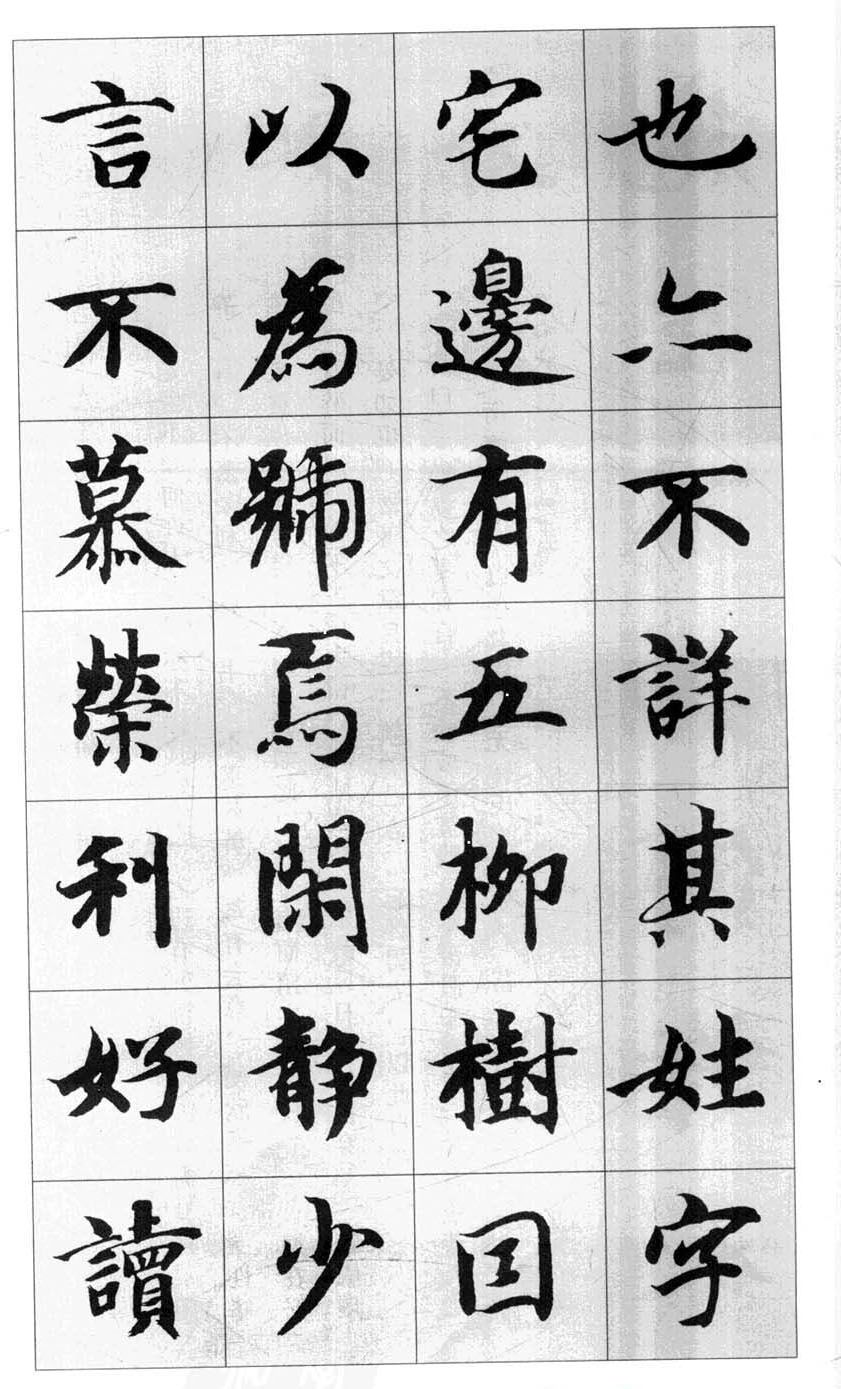 也亦不詳其姓字
宅邊有五柳樹因
以為號焉閑靜少
言不慕榮利好讀